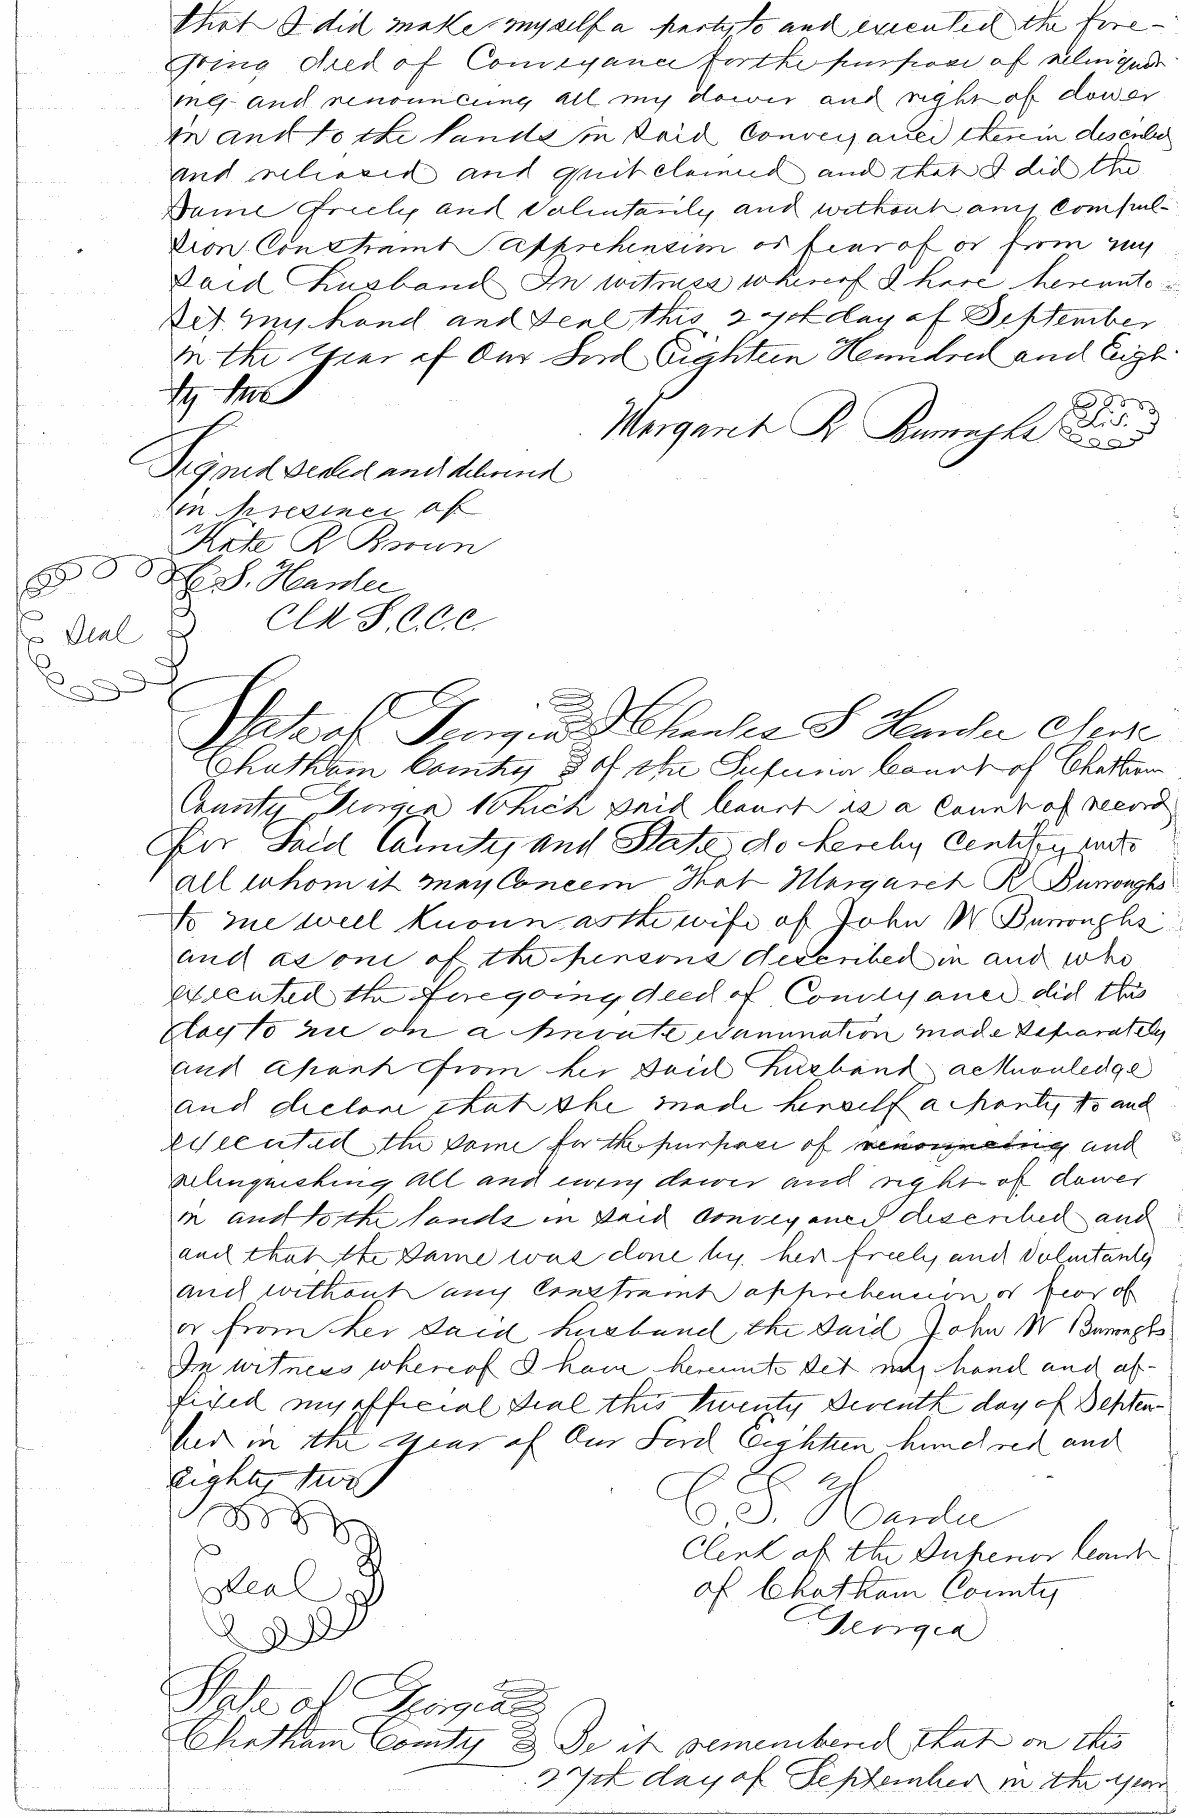 that I did make myself a party to and executed the fore-
going deed of Conveyance for the purpose of relinquish
ing and renouncing all my dower and right of dower
in and to the lands in said Conveyance therein described
and released and quit claimed and that I did the
same freely and voluntarily and without any compul-
sion Constraint apprehension or fear of or from my
said husband In witness whereof I have hereunto
set my hand and seal this 27th day of September
in the Year of Our Lord Eighteen Hundred and Eigh-
ty two
Margaret R Burroughs L.S.
Signed sealed and delivered
in presence of
Kate R Brown
C. S. Hardee
Clk S.C.C.C.
Seal
State of Georgia I Charles S Hardee Clerk
Chatham County of the Superior Court of Chatham
County Georgia Which said Court is a Court of record
for Said County and State do hereby Certify unto
all whom it may Concern That Margaret R Burroughs
to me well known as the wife of John W Burroughs
and as one of the persons described in and who
executed the foregoing deed of Conveyance did this
day to me on a private examination made separately
and apart from her said husband acknowledge
and declare that she made herself a party to and
executed the same for the purpose of renouncing and
relinquishing all and every dower and right of dower
in and to the lands in said conveyance described and
and that the same was done by her freely and voluntarily
and without any Constraint apprehension or fear of
or from her said husband the said John W Burroughs
In witness whereof I have hereunto set my hand and af-
fixed my official seal this twenty seventh day of Septem-
ber in the year of Our Lord Eighteen hundred and
eighty two
C. S. Hardee
Clerk of the Superior Court
of Chatham County
Georgia
Seal
State of Georgia
Chatham County Be it remembered that on this
27th day of September in the year